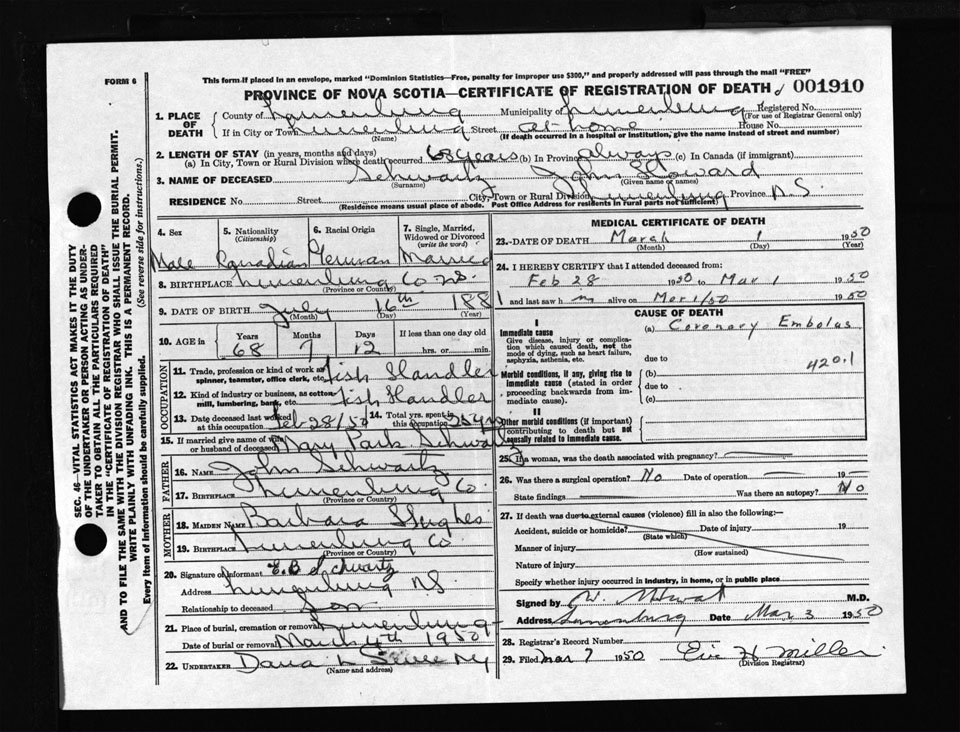 This form if placed in an envelope, marked "Dominion Statistics—Free, penalty for improper use $300," and properly addressed will pass through the mail "FREE"
FORM 6
PROVINCE OF NOVA SCOTIA—CERTIFICATE OF REGISTRATION OF DEATH 001910
1. PLACE OF DEATH
County of Lunenburg Municipality of Lunenburg Registered No.
(For use of Registrar General only)
If in City or Town Lunenburg Street at home House No.
(Name) (If death occurred in a hospital or institution, give the name instead of street and number)
2. LENGTH OF STAY (in years, months and days)
(a) In City, Town or Rural Division where death occurred 68 years (b) In Province always (c) In Canada (if immigrant)
3. NAME OF DECEASED Schwartz John Howard
(Surname) (Given name or names)
RESIDENCE No. Street City, Town or Rural Division Lunenburg Province N.S.
(Residence means usual place of abode. Post Office Address for residents in rural parts not sufficient)
4. Sex 5. Nationality (Citizenship) 6. Racial Origin 7. Single, Married, Widowed or Divorced (write the word)
Male Canadian German Married
8. BIRTHPLACE Lunenburg Co N.S.
(Province or Country)
9. DATE OF BIRTH July 16th 188
(Month) (Day) (Year)
10. AGE in Years Months Days If less than one day old
68 7 12 hrs. or min.
OCCUPATION
11. Trade, profession or kind of work as spinner, teamster, office clerk, etc. Fish Handler
12. Kind of industry or business, as cotton mill, lumbering, bank, etc. Fish Handler
13. Date deceased last worked at this occupation Feb 28/50 14. Total yrs. spent in this occupation 25 yrs
15. If married give name of wife or husband of deceased Mary Park Schwartz
FATHER
16. NAME John Schwartz
17. BIRTHPLACE Lunenburg Co.
(Province or Country)
MOTHER
18. MAIDEN NAME Barbara Hughes
19. BIRTHPLACE Lunenburg Co
(Province or Country)
20. Signature of informant E.B. Schwartz
Address Lunenburg NS.
Relationship to deceased Son
21. Place of burial, cremation or removal Lunenburg
Date of burial or removal March 4th 1950
22. UNDERTAKER
(Name and address)
MEDICAL CERTIFICATE OF DEATH
23.-DATE OF DEATH March 1 1950
(Month) (Day) (Year)
24. I HEREBY CERTIFY that I attended deceased from:
Feb 28 1950 to Mar 1 1950
I last saw h m alive on Mar 1/50 1950
CAUSE OF DEATH
I
Immediate cause
Give disease, injury or complication which caused death, not the mode of dying, such as heart failure, asphyxia, asthenia, etc.
(a) Coronary Embolus
due to
420.1
Morbid conditions, if any, giving rise to immediate cause (stated in order proceeding backwards from immediate cause).
(b)
due to
(c)
II
Other morbid conditions (if important) contributing to death but not causally related to immediate cause.
25. If a woman, was the death associated with pregnancy?
26. Was there a surgical operation? No Date of operation 19
State findings Was there an autopsy? No
27. If death was due to external causes (violence) fill in also the following:—
Accident, suicide or homicide? Date of injury 19
(State which)
Manner of injury
(How sustained)
Nature of injury
Specify whether injury occurred in industry, in home, or in public place
Signed by M.D.
Address Lunenburg Date Mar 3 1950
28. Registrar's Record Number
29. Filed Mar 7 1950 Eric H Miller
(Division Registrar)
SEC. 46—VITAL STATISTICS ACT MAKES IT THE DUTY
OF THE UNDERTAKER OR PERSON ACTING AS UNDERTAKER
TO OBTAIN ALL THE PARTICULARS REQUIRED
IN THE "CERTIFICATE OF REGISTRATION OF DEATH"
AND TO FILE THE SAME WITH THE DIVISION REGISTRAR WHO SHALL ISSUE THE BURIAL PERMIT.
WRITE PLAINLY WITH UNFADING INK. THIS IS A PERMANENT RECORD.
Every item of Information should be carefully supplied. (See reverse side for instructions.)